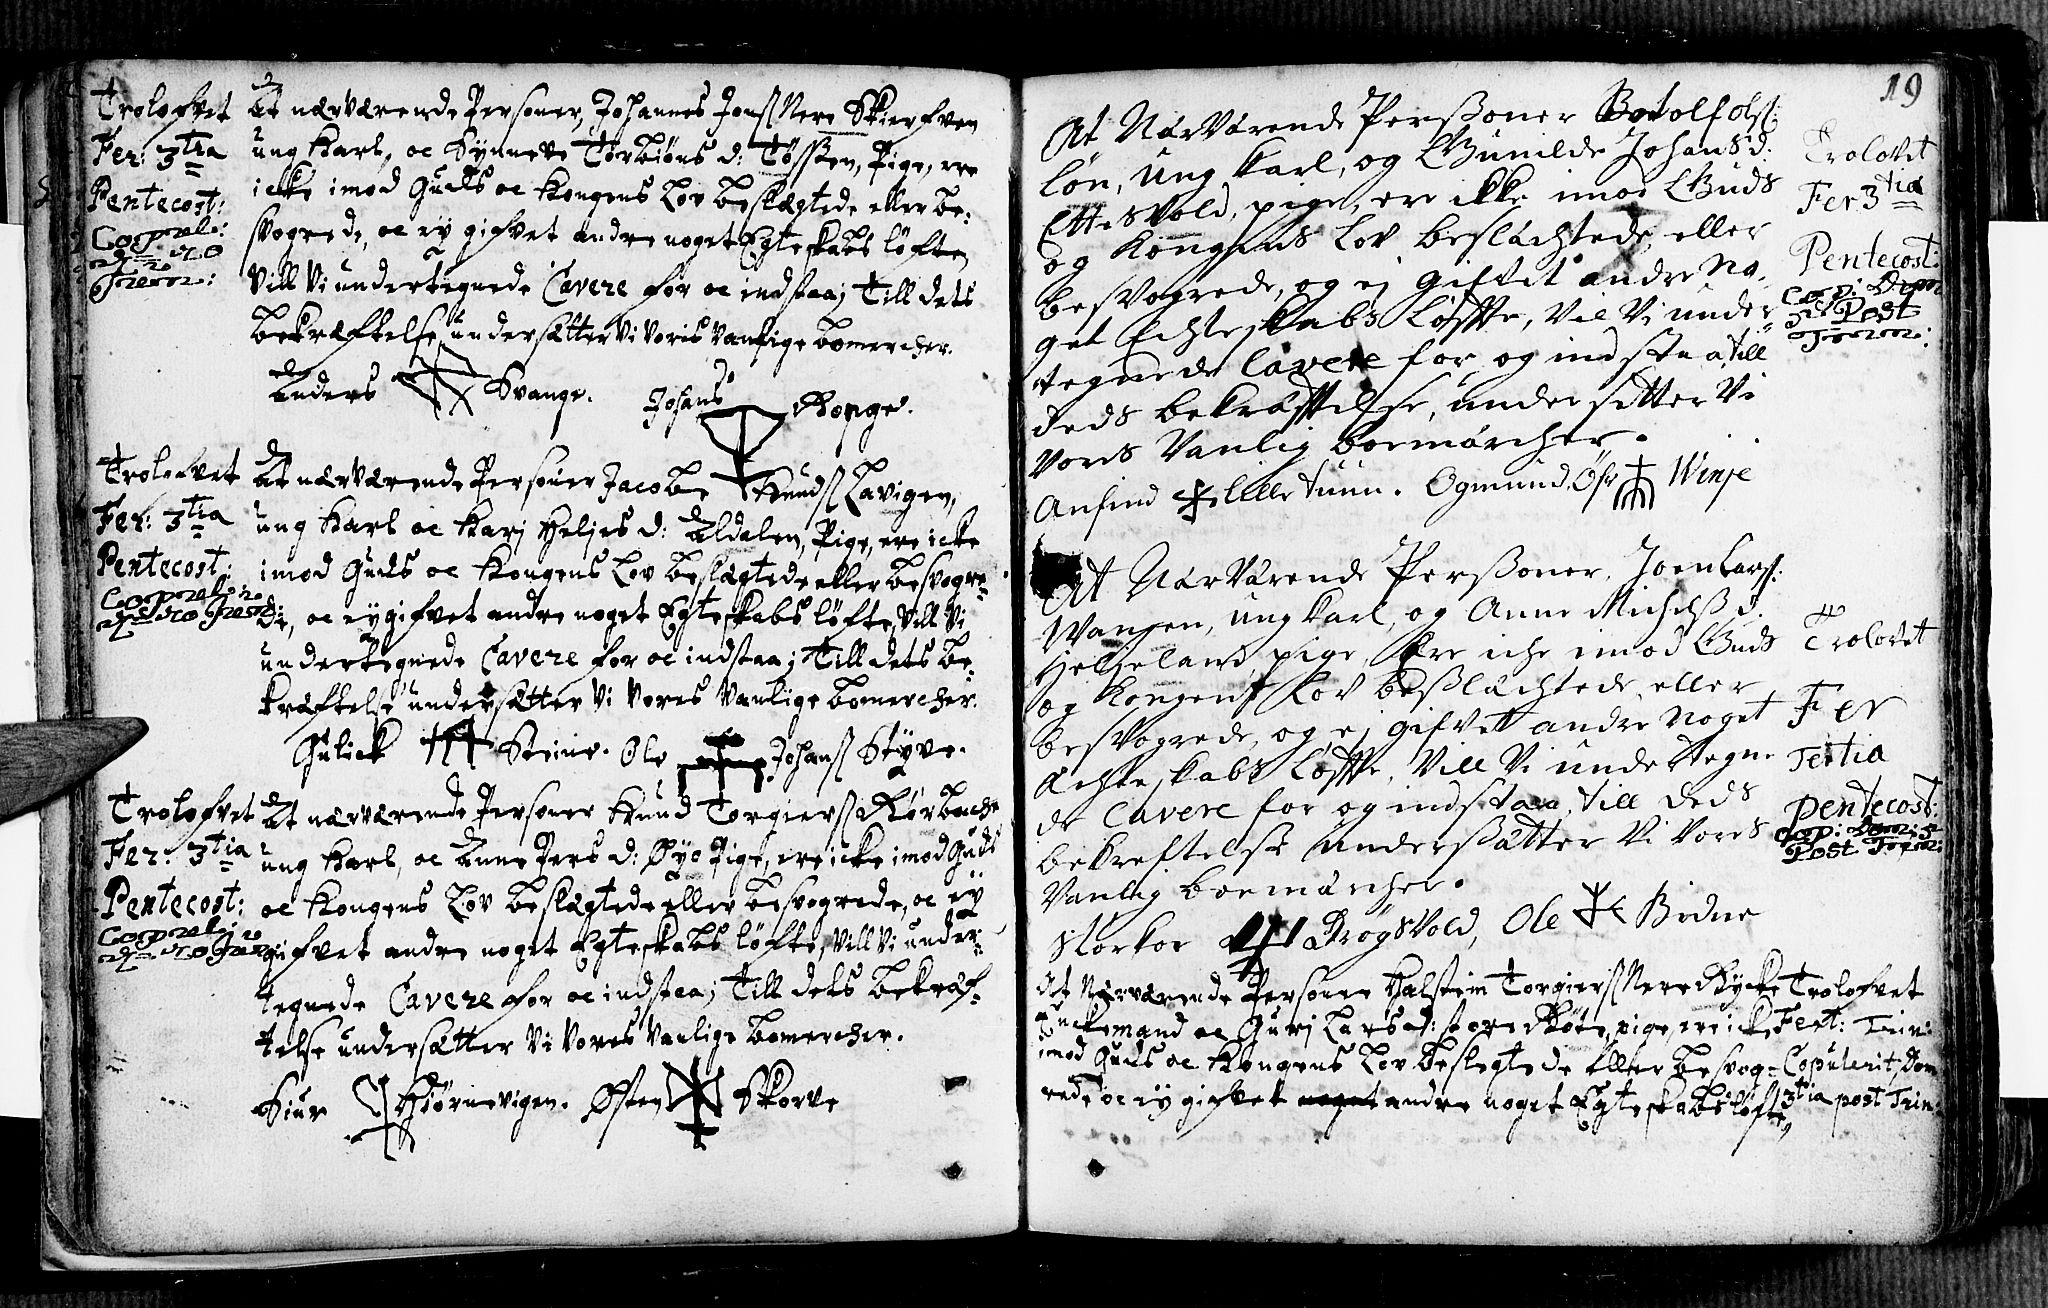 Trolofvet
Fer: 3tia
Pentecost:
Copul:
Trin:
At nærværende Personer, Johannes Jons: Nere Skierfven
ung Karl, oc Synneve Torbiøns d: Tøssen, Pige, ere
icke imod Guds oc Kongens Lov beslægtede eller be-
svogrede, oc ey gifvet andre noget Egteskabs løfte
Vill Vi undertegnede Cavere for oc indstaa; Till dets
bekræftelse undersætter Vi Voris Vanlige bomercher.
Anders Svange. Johans Ropge.
Trolofvet
Fer: 3tia
Pentecost:
At nærværende Personer Jacob Knuds: Lavigen,
ung Karl oc Karj Heljes d: Aldalen, Pige, ere icke
imod Guds oc Kongens Lov beslægtede eller besvogre-
de, oc ey gifvet andre noget Egteskabs løfte, Vill Vi
undertegnede Cavere for oc indstaa; Till dets be-
kræftelse undersætter Vi Vores Vanlige bomercher.
Gulick Steine. Ole Johans: Styve.
Trolofvet
Fer: 3tia
Pentecost:
At nærværende Personer Knud Torgiers: Rørbache
ung Karl, oc Anne Pers d: Øye Pige, ere icke imod Guds
oc Kongens Lov beslægtede eller besvogrede, oc eÿ
gifvet andre noget Egteskabs løfte, Vill Vi under-
tegnede Cavere for oc indstaa; Till dets bekræf-
telse undersætter Vi Vores Vanlige bomercher.
Siur Hiørnevigen. Østen Skorve
19
At Nærværende Perssoner Botolf Ols:
Løn, Ung karl, og Gunilde Johansd:
Ettesvold, pige, ere ikke imod Guds
og Kongens Lov beslächtede, eller
besvogrede, og ej Giffvet andre No-
get Echteskabs Løffte, Vil Vi under-
tegnede Cavere for, og indstaa, till
deds bekræfftelse, undersetter Vi
Vores Vanlig boemärcher.
Anfind Lilletuun. Ogmund Øfr Winje
Trolovet
Fer 3tia
Pentecost:
Cop: Dom
Post
Trin:
At Närvärende Perssoner, Joen Lars:
Wangen, ung karl, og Anne Michelss d.
Helgeland, pige, ere iche imod Guds
og Kongens Lov besslächtede, eller
besvogrede, og ej gifvet andre Noget
Ächteskabs Løffte, Vill Vi undertegne
de Cavere for og indstaa, till deds
bekreftelse undersätter Vi Vores
Vanlig boemärcher.
Storkor Drøgsvold, Ole Bidne
Trolovet
Fer
Tertia
pentecost:
Cop: Dom: 5
Post Trin:
At Nærværende Personer Halstein Torgiers: Nere Rycke
Enckemand oc Gurj Larsd: store Røte, pige, ere icke
imod Guds oc Kongens Lov beslegtede eller besvog-
rede oc ey gifvet noget andre noget Egteskabs løfte,
Trolofvet
Fest: Trin:
Copulerit, Dom
3tia post Trin: